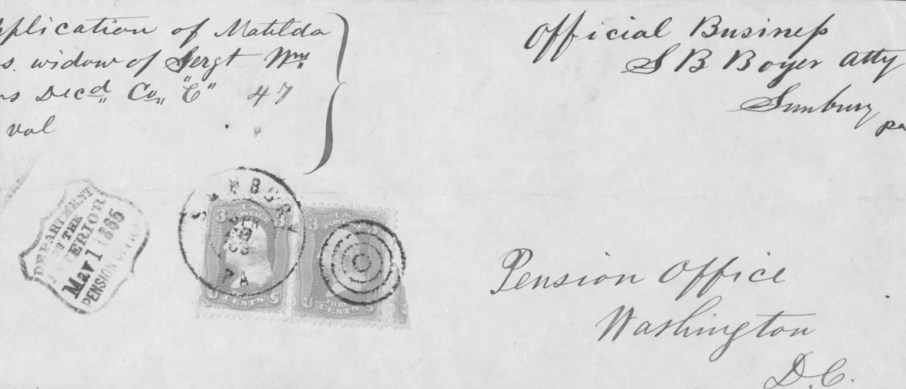 pplication of Matilda
s. widow of Sergt Wm.
s Decd, Co "C" 47
vol
Official Business
S B Boyer Atty
Sunbury
pa
DEPARTMENT
OF THE
INTERIOR
May 1 1865
PENSION OFFICE
SUNBURY
PA
3 3
CENTS
3
Pension Office
Washington
D.C.